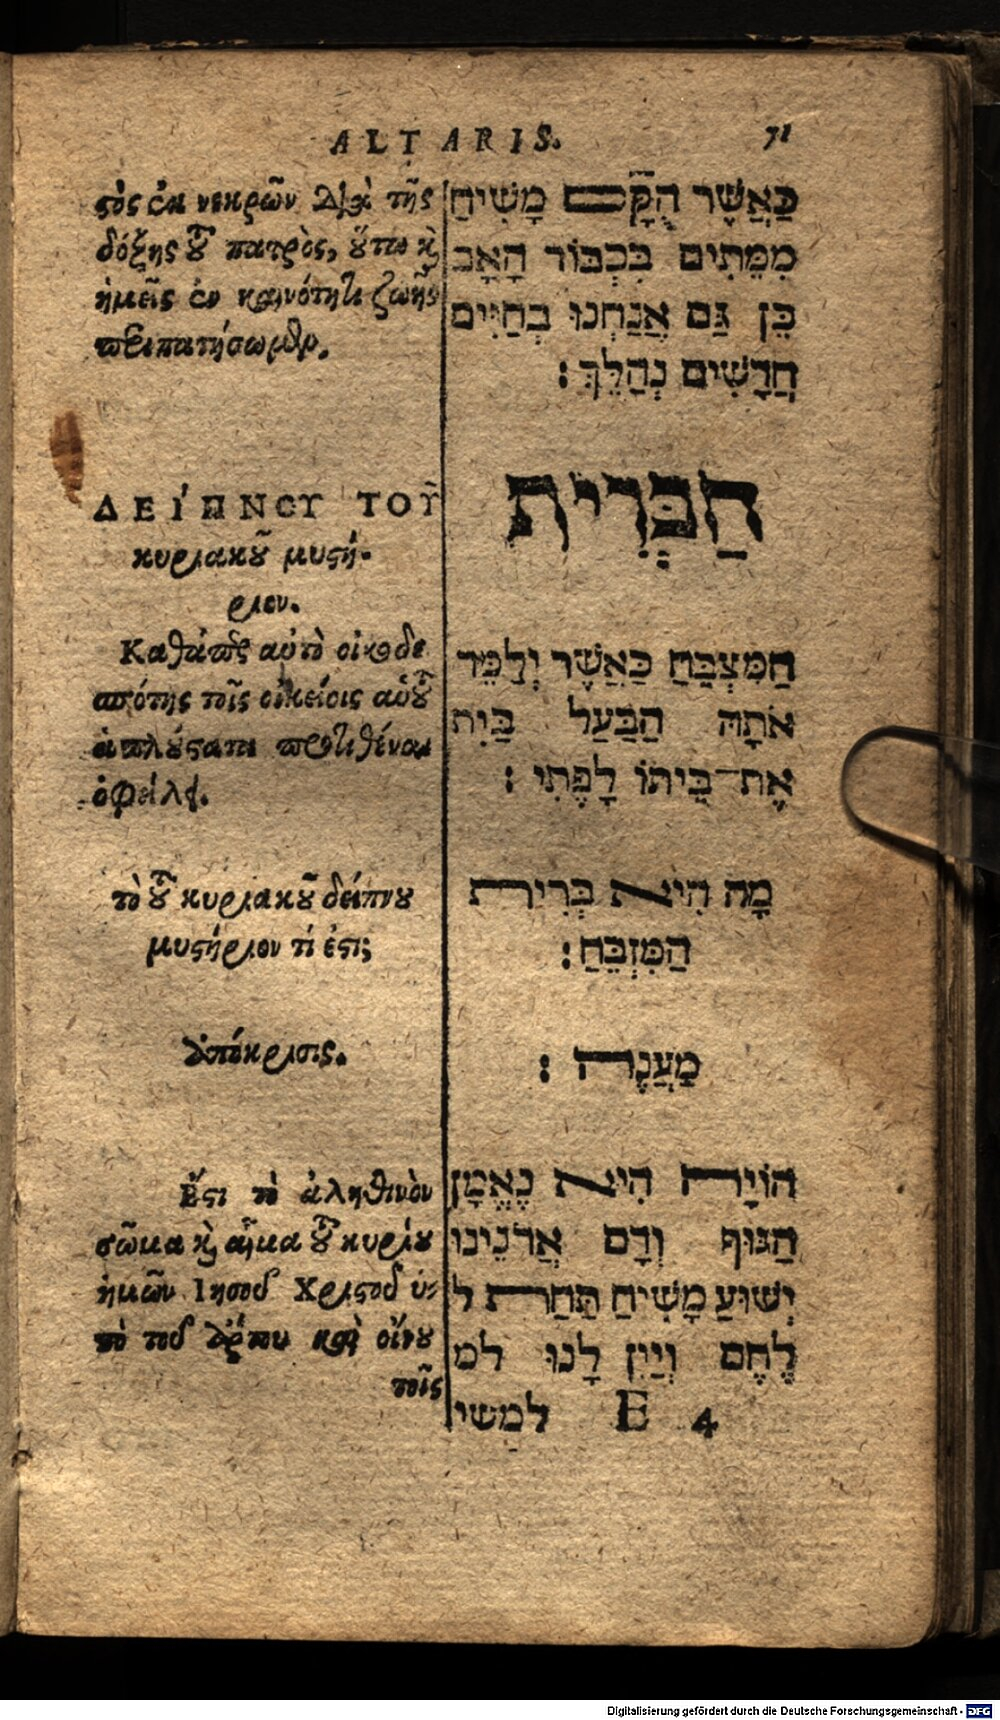 ALTARIS. 71
τὸς ἐκ νεκρῶν Διὰ τῆς
δόξης τοῦ πατρὸς, οὕτω καὶ
ἡμεῖς ἐν καινότητι ζωῆς
περιπατήσωμεν.
ΔΕΊΠΝΟΥ ΤΟΥ͂
κυριακοῦ μυστή-
ριον.
Καθάπερ αὐτὸ οἰκοδε
σπότης τοῖς οἰκείοις αὑτοῦ
ἁπλούστατα προτιθέναι
ὀφείλει.
τὸ τοῦ κυριακοῦ δείπνου
μυστήριον τί ἐστι;
ἀπόκρισις.
Ἔστι τὸ ἀληθινὸν
σῶμα καὶ αἷμα τοῦ κυρίου
ἡμῶν Ἰησοῦ Χριστοῦ ὑ-
πὸ τοῦ ἄρτου καὶ οἴνου
τοῖς
כַּאֲשֶׁר הֻקָּם מָשִׁיחַ
מִמֵּתִים בִּכְבוֹד הָאָב
כֵּן גַּם אֲנַחְנוּ בְחַיִּים
חֲדָשִׁים נְהַלֵּךְ׃
הַבְּרִית
הַמִּצְבֵּחַ כַּאֲשֶׁר יְלַמֵּד
אֹתָהּ הַבַּעַל בַּיִת
אֶת־בֵּיתוֹ לָפֶתִי׃
מָה הִיא בְּרִית
הַמִּזְבֵּחַ׃
מַעֲנֶה׃
הוֹיָה הִיא נֶאֱמָן
הַגּוּף וְדָם אֲדֹנֵינוּ
יְשׁוּעַ מָשִׁיחַ תַּחַת ל
לֶחֶם וְיַיִן לָנוּ למ
למשי E 4
Digitalisierung gefördert durch die Deutsche Forschungsgemeinschaft - DFG